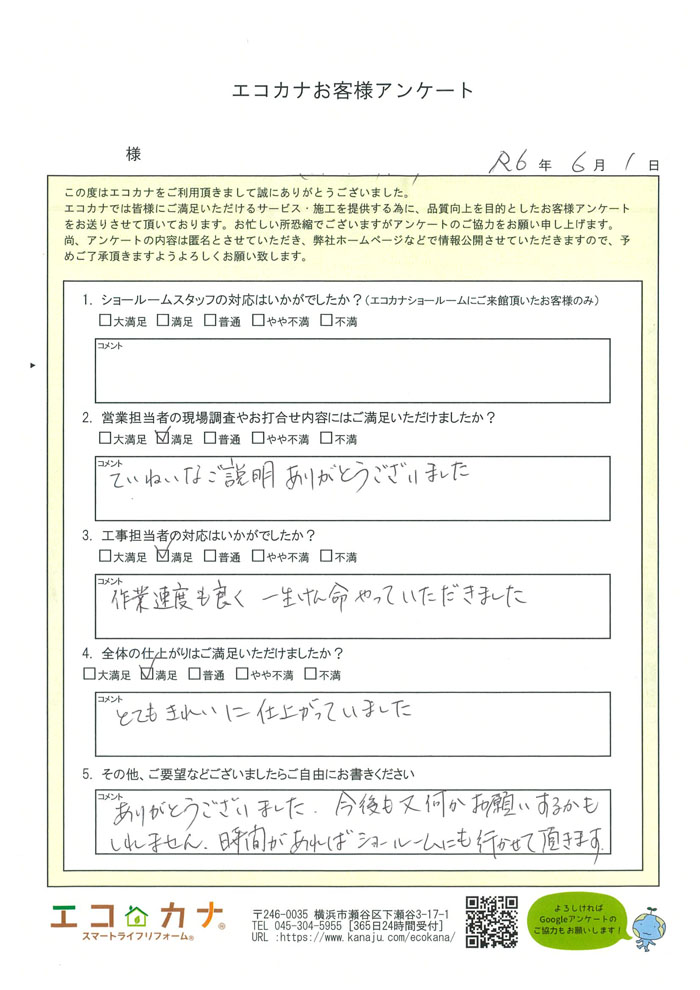 エコカナお客様アンケート
様
R6 年 6 月 1 日
この度はエコカナをご利用頂きまして誠にありがとうございました。
エコカナでは皆様にご満足いただけるサービス・施工を提供する為に、品質向上を目的としたお客様アンケート
をお送りさせて頂いております。お忙しい所恐縮でございますがアンケートのご協力をお願い申し上げます。
尚、アンケートの内容は匿名とさせていただき、弊社ホームページなどで情報公開させていただきますので、予
めご了承頂きますようよろしくお願い致します。
1. ショールームスタッフの対応はいかがでしたか？（エコカナショールームにご来館頂いたお客様のみ）
□大満足 □満足 □普通 □やや不満 □不満
コメント
2. 営業担当者の現場調査やお打合せ内容にはご満足いただけましたか？
□大満足 ☑満足 □普通 □やや不満 □不満
コメント
ていねいなご説明ありがとうございました
3. 工事担当者の対応はいかがでしたか？
□大満足 ☑満足 □普通 □やや不満 □不満
コメント
作業速度も良く 一生けん命やっていただきました
4. 全体の仕上がりはご満足いただけましたか？
□大満足 ☑満足 □普通 □やや不満 □不満
コメント
とてもきれいに仕上がっていました
5. その他、ご要望などございましたらご自由にお書きください
コメント
ありがとうございました. 今後も又何かお願いするかも
しれません. 時間があればショールームにも行かせて頂きます.
エコカナ®
スマートライフリフォーム®
〒246-0035 横浜市瀬谷区下瀬谷3-17-1
TEL 045-304-5955 [365日24時間受付]
URL :https://www.kanaju.com/ecokana/
よろしければ
Googleアンケートの
ご協力もお願いします！